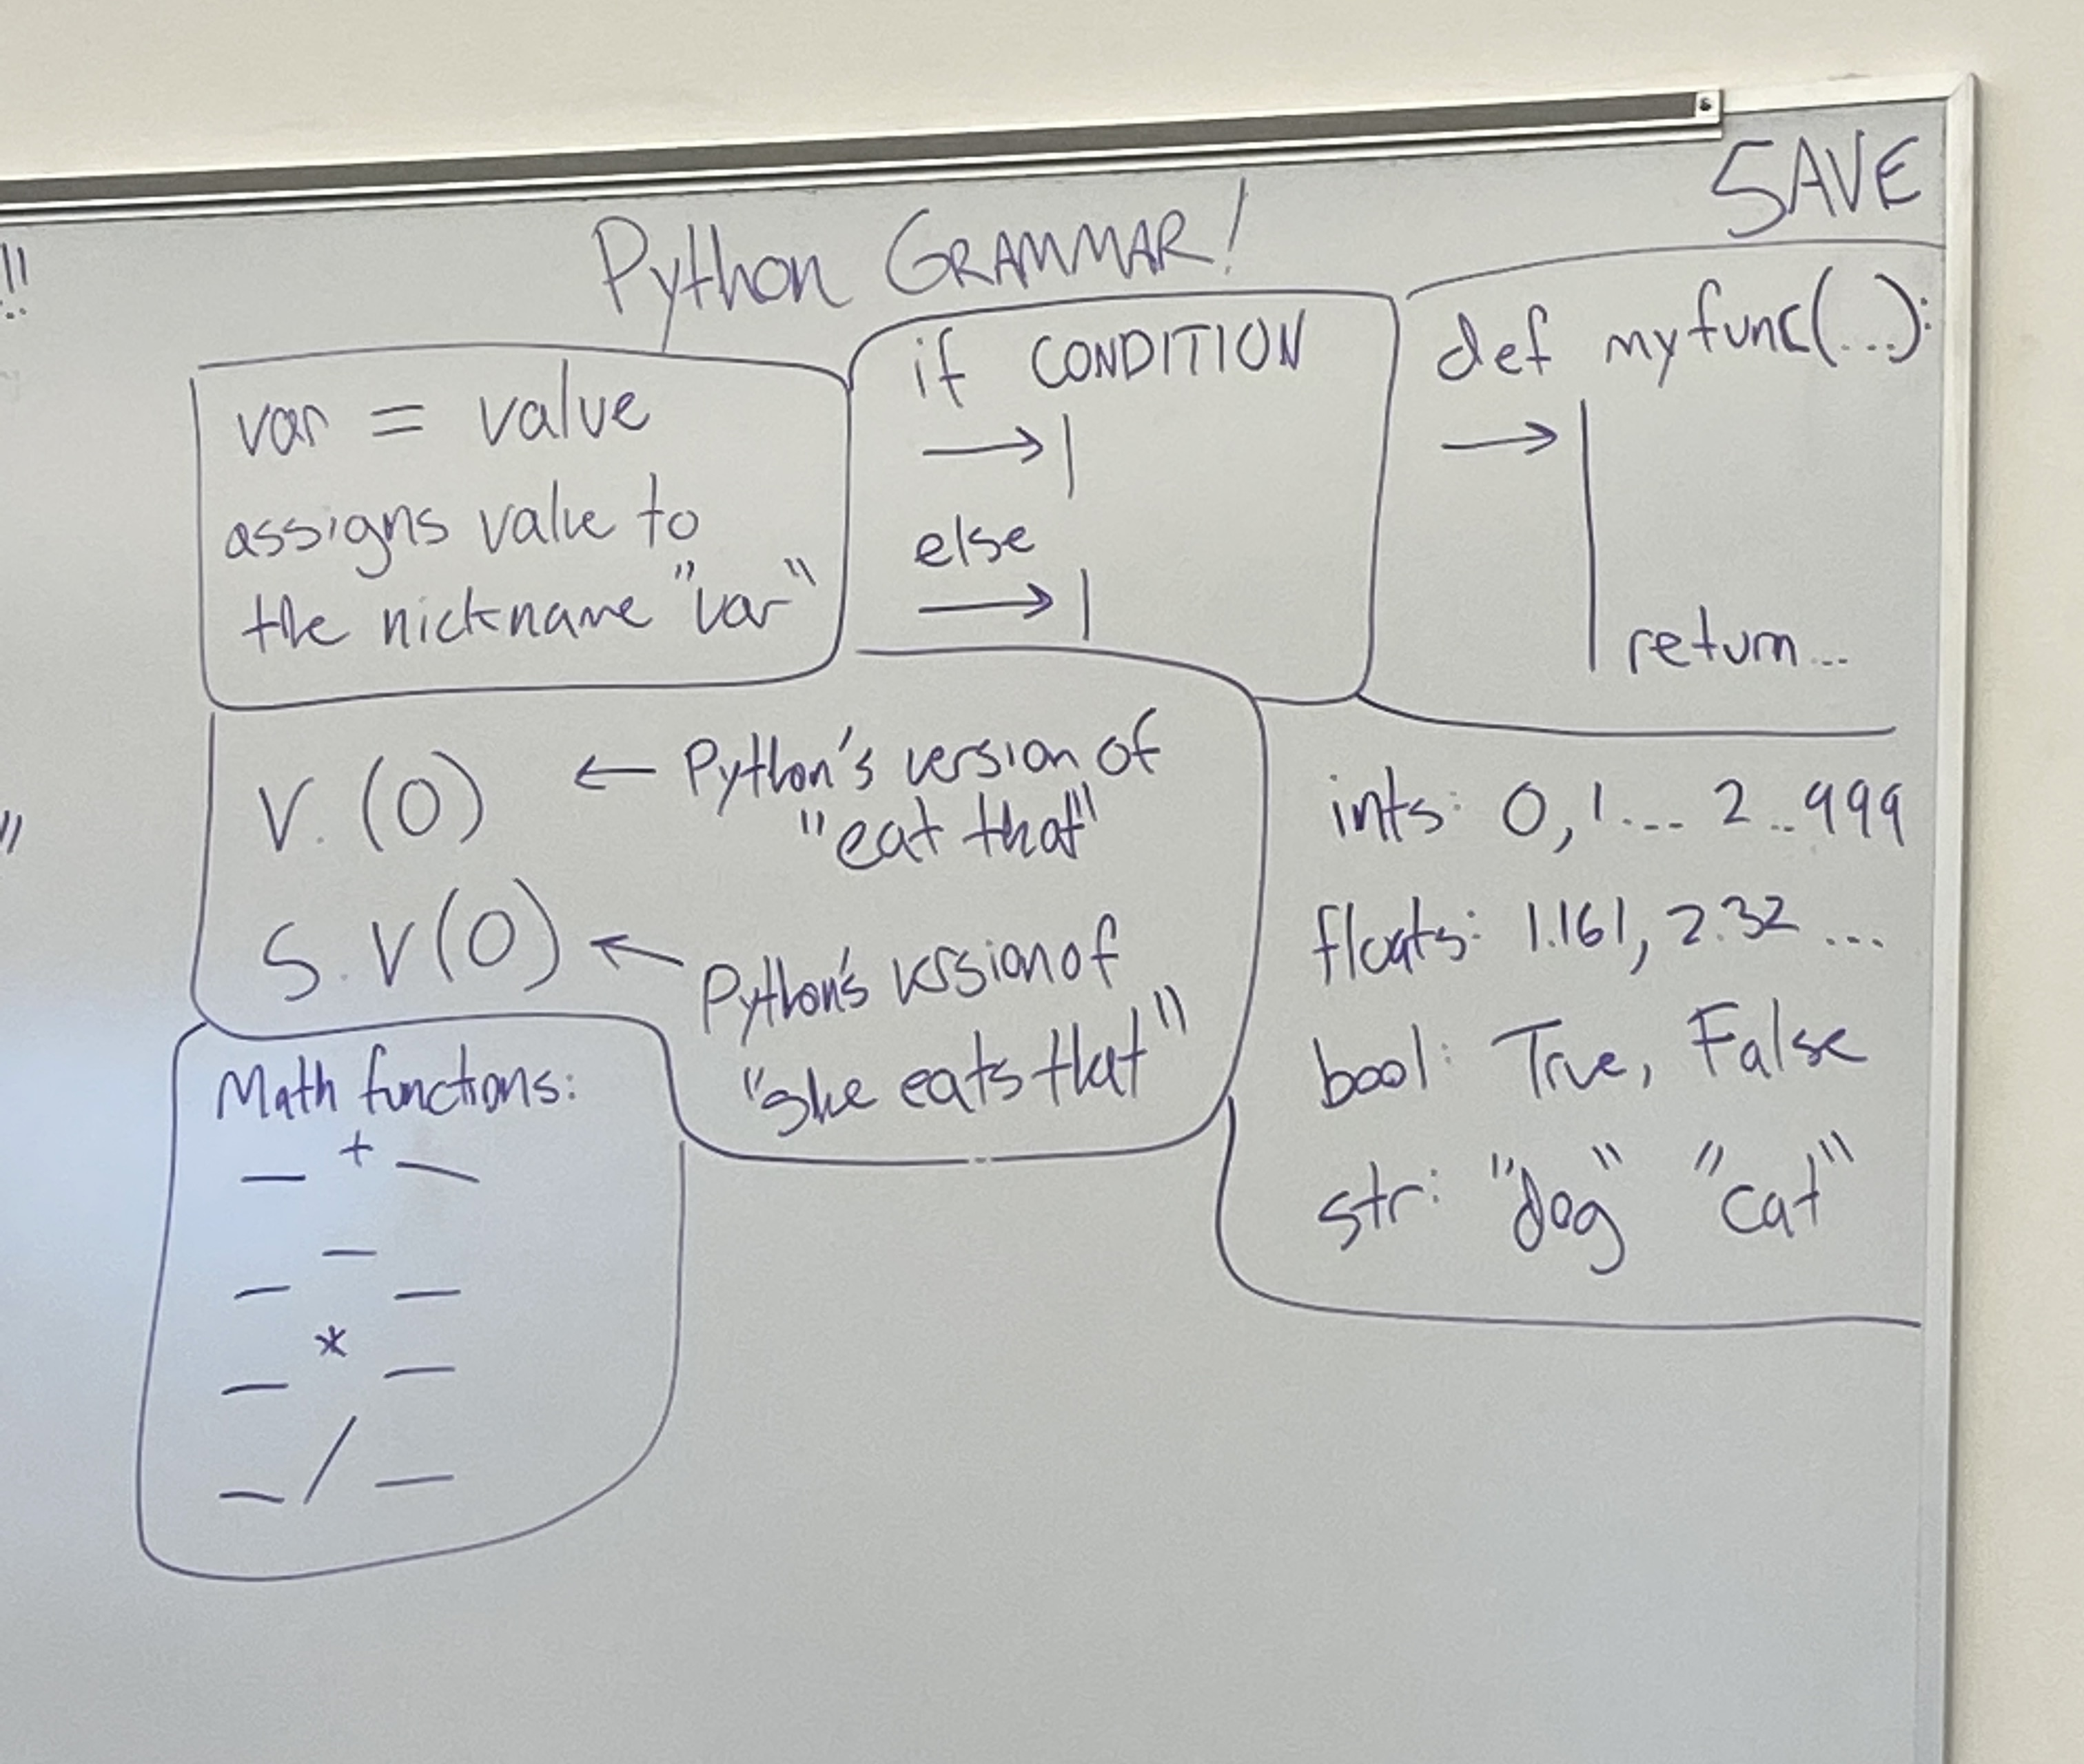 SAVE
Python GRAMMAR!
!!
var = value
assigns value to
the nickname "var"
if CONDITION
→|
else
→|
def myfunc(...):
→|
return...
V.(O) ← Python's version of
"eat that"
S.V(O) ← Python's version of
"she eats that"
"
ints: 0,1.... 2..999
floats: 1.161, 2.32 ...
bool: True, False
str: "dog" "cat"
Math functions:
_ + _
_ - _
_ * _
_ / _